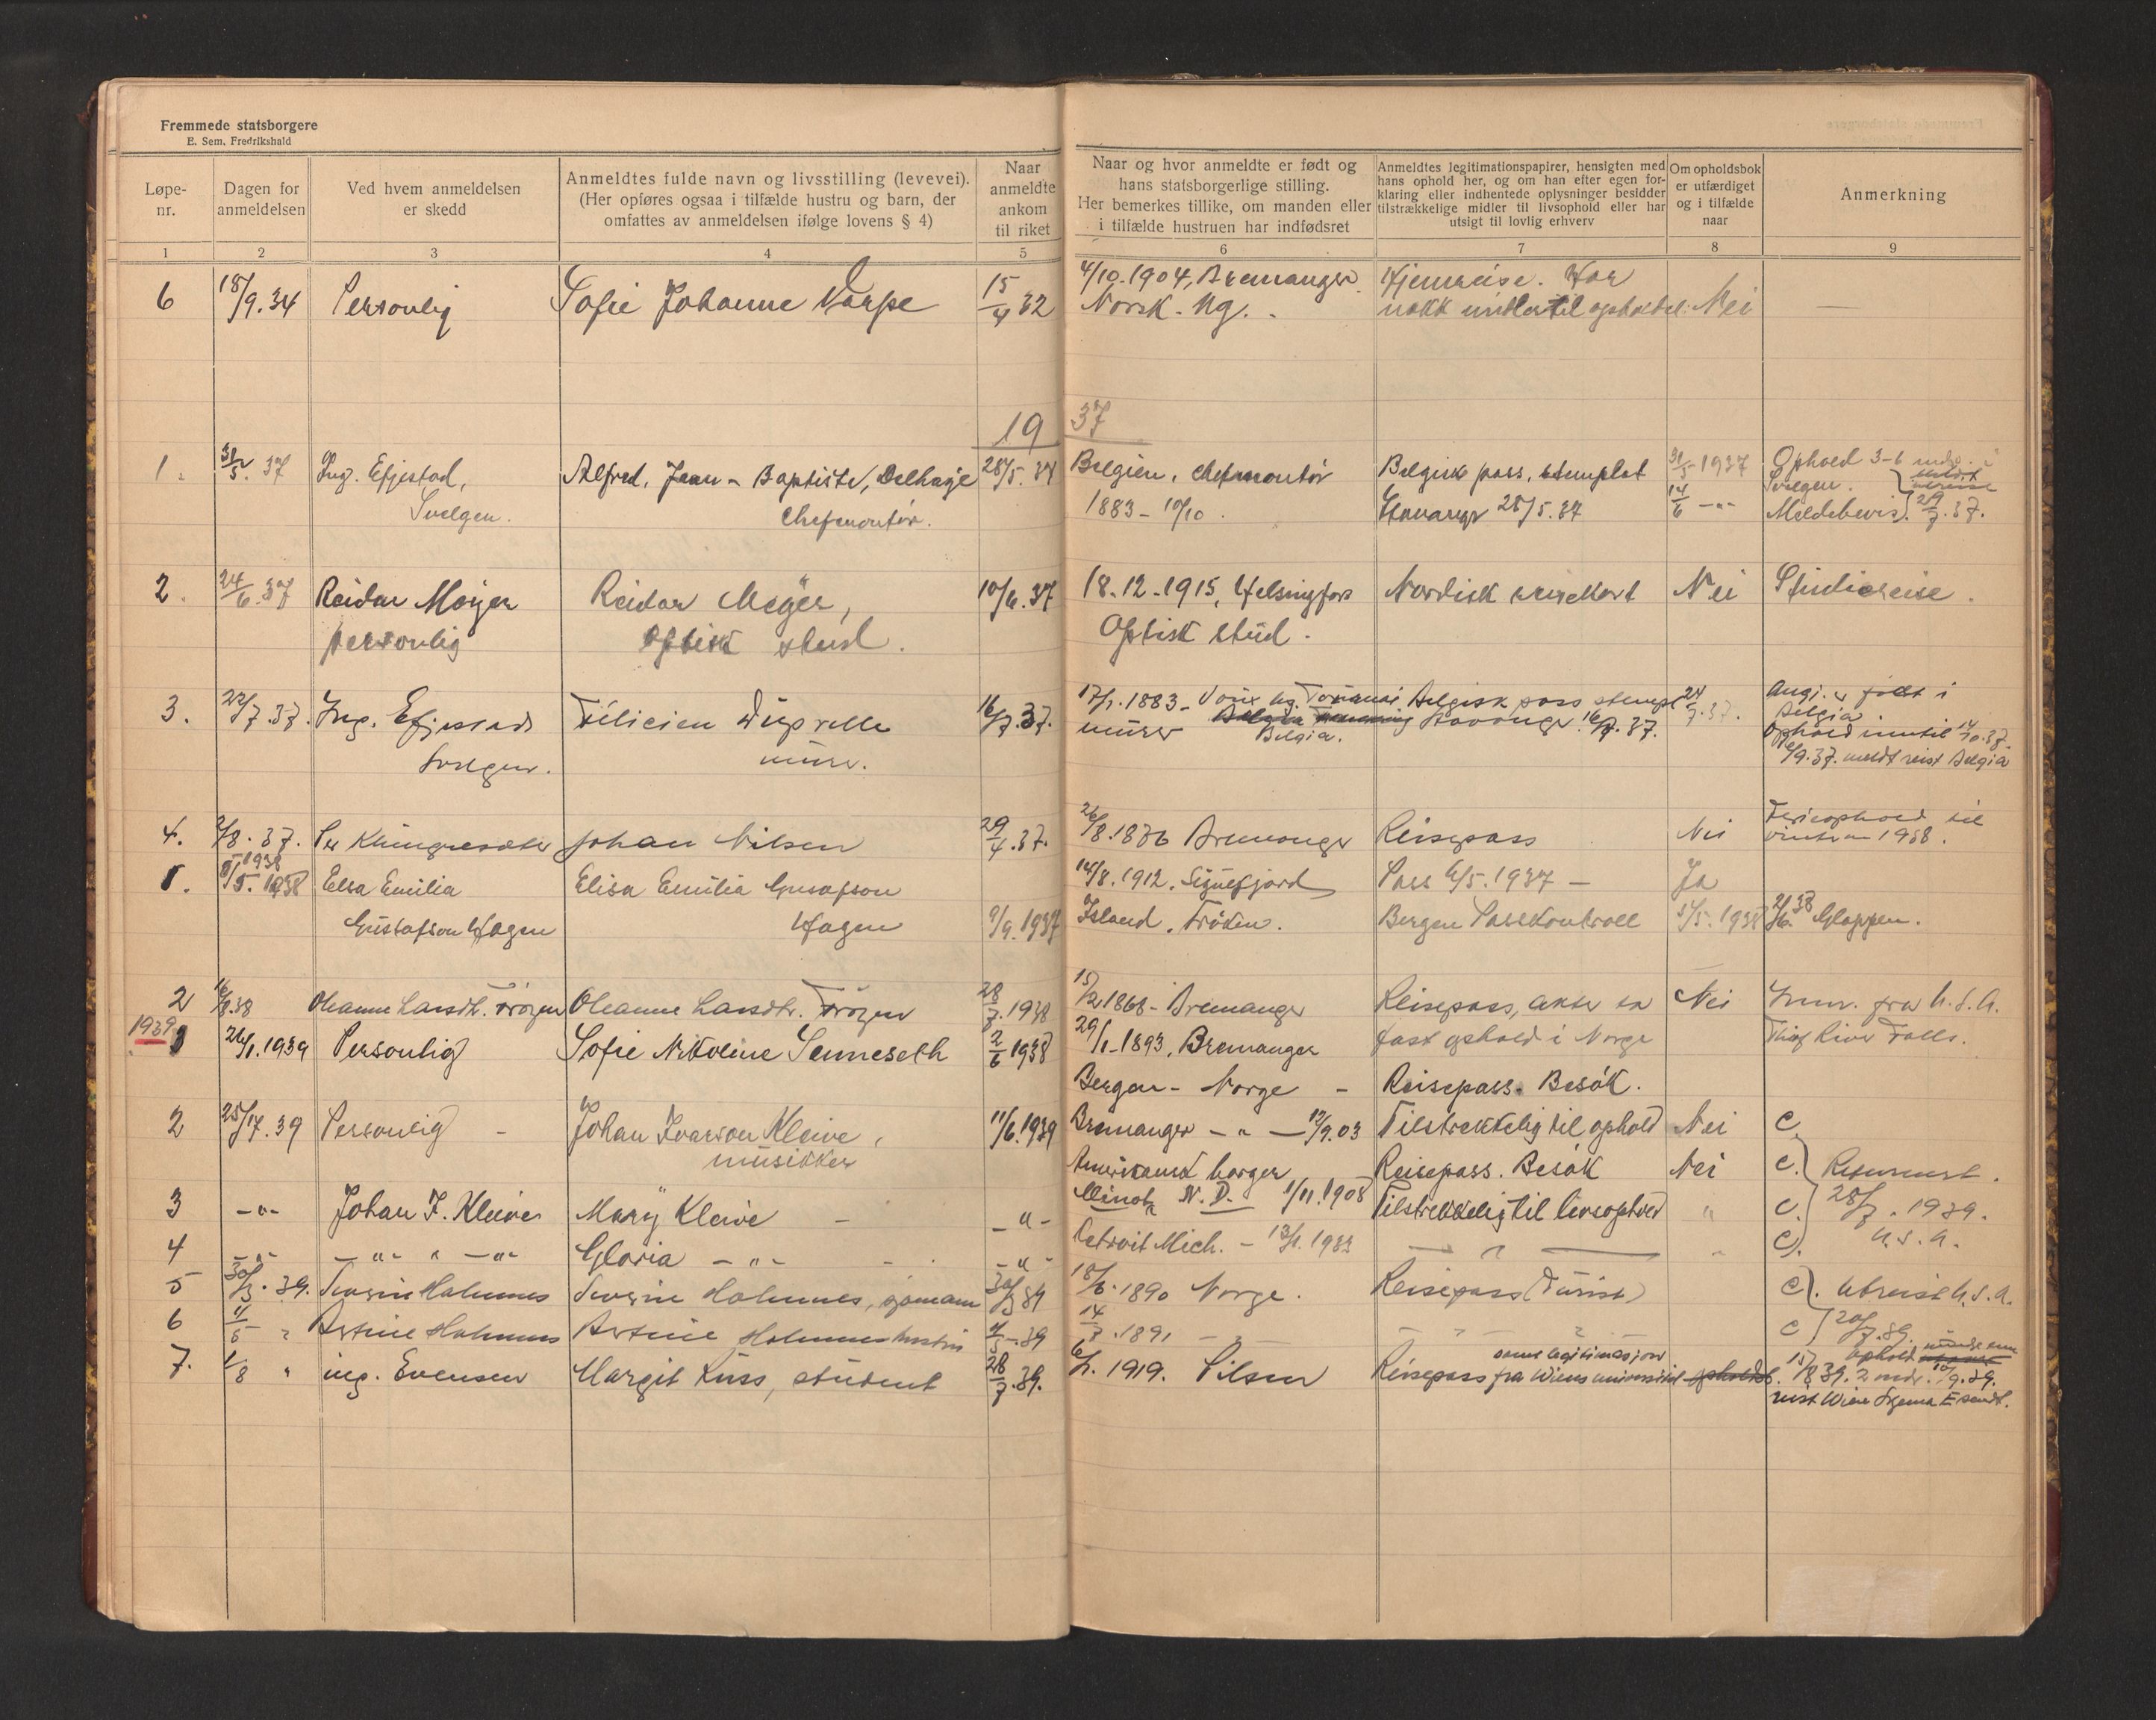 Fremmede statsborgere
E. Sem. Fredrikshald
Løpe-
nr.
Dagen for
anmeldelsen
Ved hvem anmeldelsen
er skedd
Anmeldtes fulde navn og livsstilling (levevei).
(Her opføres ogsaa i tilfælde hustru og barn, der
omfattes av anmeldelsen ifølge lovens § 4)
Naar
anmeldte
ankom
til riket
Naar og hvor anmeldte er født og
hans statsborgerlige stilling.
Her bemerkes tillike, om manden eller
i tilfælde hustruen har indfødsret
Anmeldtes legitimationspapirer, hensigten med
hans ophold her, og om han efter egen for-
klaring eller indhentede oplysninger besidder
tilstrækkelige midler til livsophold eller har
utsigt til lovlig erhverv
Om opholdsbok
er utfærdiget
og i tilfælde
naar
Anmerkning
1 2 3 4 5 6 7 8 9
6 18/9.34 Personlig Sofie Johanne Varpe 15/4 32 4/10.1904, Bremanger Hjemreise. Har
Norsk. Ug. nokk midler til ophold Nei —
19 37
1. 31/5.37 Ing. Efjestad, Alfred, Jean-Baptiste, Delhaije 28/5.37 Belgien, chefmontör Belgisk pass, stemplet 31/5-1937 Ophold 3-6 mdr.
Svelgen. Chefmontör. 1883-10/10. Stavanger 28/5.37 14/6 -"- Svelgen.
Meldebevis 29/7.37.
2. 24/6.37 Reidar Meyer Reidar Meyer, 10/6.37 18.12.1915, Helsingfors Nordisk reisekort Nei Studiereise.
personlig Optisk stud. Optisk stud.
3. 22/7.37. Ing. Efjestad Félicien Duprelle 16/7.37. 17/1.1883- Tournai Belgisk pass stempl 24/7.37. Angi. er født i
Svelgen. murer. murer Belgia. Stavanger 16/7.37. Belgia.
Ophold inntil 14/10.37.
6/9.37. meldt reist Belgia
4. 2/8.37. Johan Nilsen 29/4.37. 26/8.1876 Bremanger Reisepass Nei Ferieophold til
vinteren 1938.
5. 1938
5/5.1938 Elsa Emilia Elisa Emilia Gustafson 14/8.1912. Siglufjord Pass 6/5.1937 — Ja
Gustafson Hagen Hagen 9/9.1937 Island. Fröken. Bergen Passkontroll 5/5.1938 2/6.38 Gloppen.
2 16/8.38 Oleanne Larsdtr. Oleanne Larsdtr. 28/7.1938 15/2 1868- Bremanger Reisepass, akter ta Nei Imm. fra U.S.A.
1939
26/1.1939 Personlig Sofie Nikoline Senneseth 2/6 1938 29/1-1893, Bremanger fast ophold i Norge Thief River Falls.
Bergen - Norge - Reisepass. Besök.
2 25/7.39 Personlig - Johan Ivarson Kleive, 11/6.1939 Bremanger -"- 12/9.03 Tilstrekkelig til ophold Nei C.
musikker Amerikansk borger Reisepass. Besök Nei C. Returnert.
3 -"- Johan I. Kleive Mary Kleive - -"- Minot, N.D. 1/11.1908 Tilstrekkelig til livsophold " C. 28/7.1939.
4 -"- -"- " -"- Gloria -"- -"- Detroit Mich. - 13/1.1932 — " — " C. U.S.A.
5 30/3.39. Severin Holmnes Severin Holmnes, sjömann 30/3 39 18/6.1890 Norge. Reisepass (Turist) C. Utreist U.S.A.
6 4/5 " Holmnes Holmnes hustru 4/5-39 14/7.1891 -"- " " C 20/7.39.
7. 1/8 " ing. Evensen Margit Kuss, student 28/7.39. 6/7.1919. Pilsen Reisepass samt legitimasjon
fra Wiens universitet ophold
15/8 39. 2 mdr. 10/9.39.
reist Wien skjema E sendt.